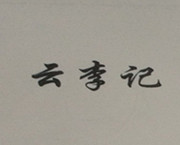 云李记